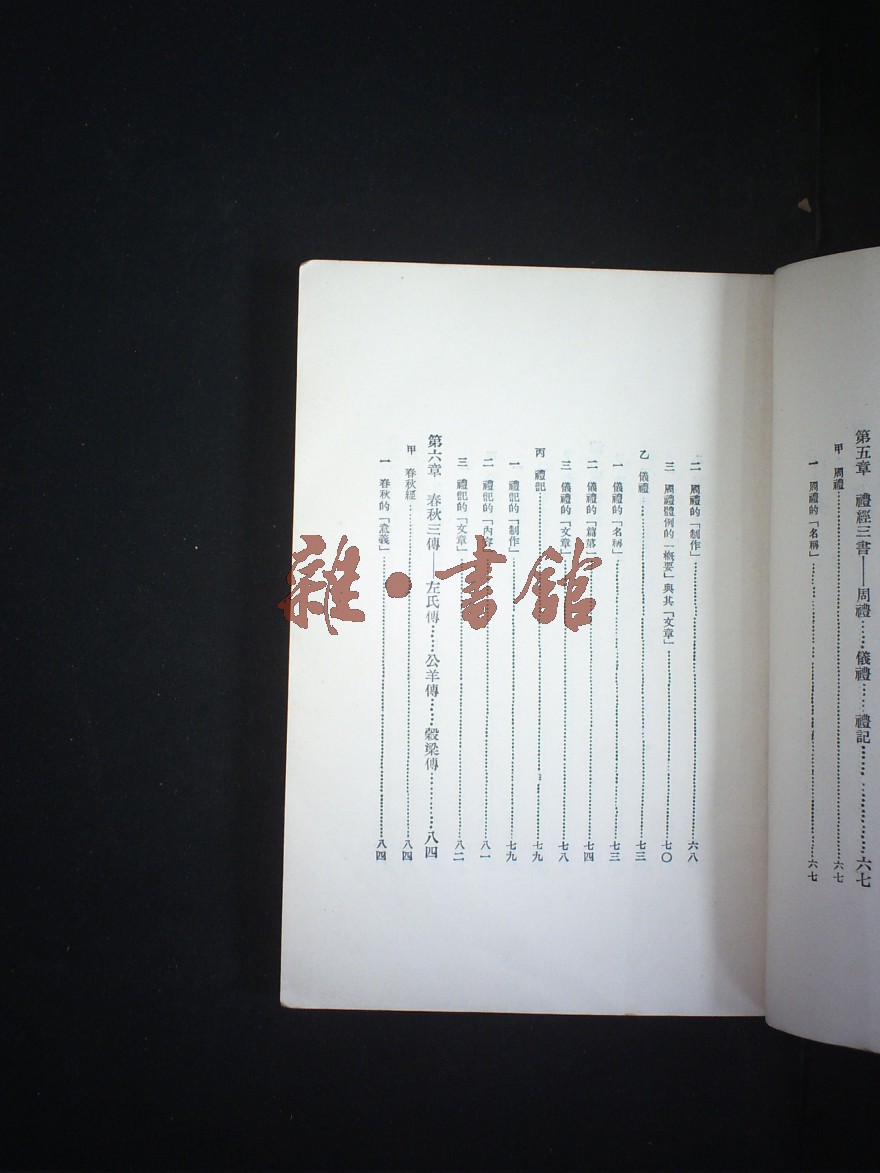 第五章　禮經三書——周禮……儀禮……禮記…………六七
甲　周禮…………六七
一　周禮的「名稱」…………六七
二　周禮的「制作」…………六八
三　周禮體例的「概要」與其「文章」…………七〇
乙　儀禮…………七三
一　儀禮的「名稱」…………七三
二　儀禮的「篇第」…………七四
三　儀禮的「文章」…………七八
丙　禮記…………七九
一　禮記的「制作」…………七九
二　禮記的「內容」…………八一
三　禮記的「文章」…………八二
第六章　春秋三傳——左氏傳……公羊傳……穀梁傳…………八四
甲　春秋經…………八四
一　春秋的「意義」…………八四
雜·書館